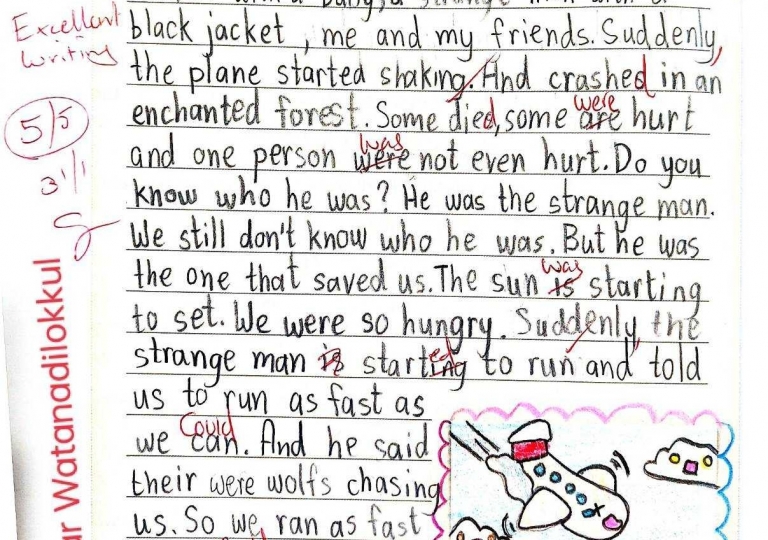 Excellent
writing
5/5
31/1
ur Watanadilokkul
black jacket, me and my friends. Suddenly,
the plane started shaking. And crashed in an
enchanted forest. Some died, some are were hurt
and one person were was not even hurt. Do you
know who he was? He was the strange man.
We still don't know who he was. But he was
the one that saved us. The sun is was starting
to set. We were so hungry. Suddenly, the
strange man is started to run and told
us to run as fast as
we can could. And he said
their were wolfs chasing
us. So we, ran as fast